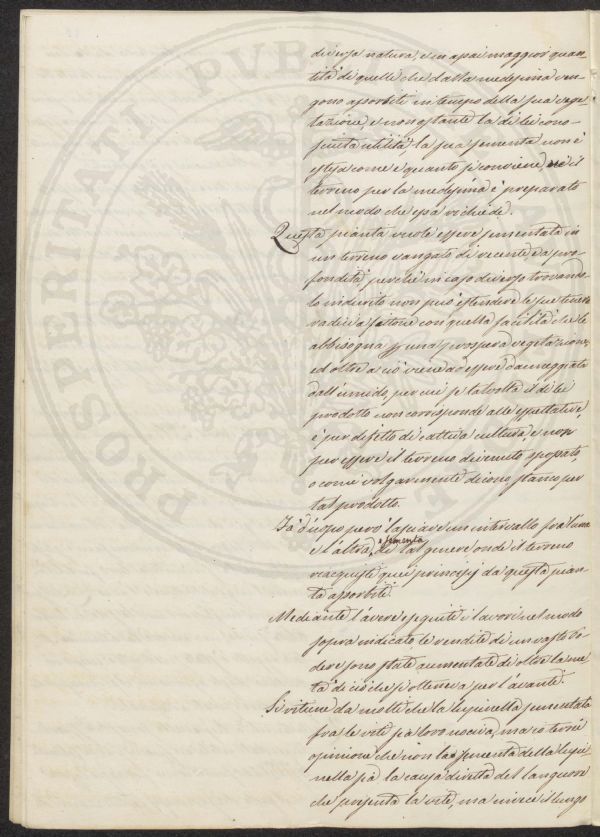 diversa natura, e in assai maggior quan-
tità di quelle che dalla medesima ven-
gono assorbite in tempo della sua vege-
tazione, e non ostante la di lei cono-
sciuta utilità, la sua sementa non è
estesa come e quanto si conviene, nè il
terreno per la medesima è preparato
nel modo che essa richiede.
Questa pianta vuole essere sementata in
un terreno vangato di recente, e a pro-
fondità, perché in caso diverso trovando-
lo indurito non può estendere le sue tenere
radici a fittone con quella facilità che le
abbisogna per una prospera vegetazione,
ed oltre a ciò viene ad essere danneggiata
dall'umido, per cui se talvolta il di lei
prodotto non corrisponde alle aspettative
è per difetto di cattiva cultura, e non
per essere il terreno divenuto spossato,
o come volgarmente dicono, stanco per
tal prodotto.
Fa d'uopo però lasciare un intervallo fra l'una
e l'altra sementa di tal genere onde il terreno
reacquisti quei principj da questa pian-
ta assorbiti.
Mediante l'avere eseguiti i lavori nel modo
sopra indicato, le rendite di un vasto Po-
dere sono state aumentate di oltre la me-
tà di ciò che si otteneva per l'avanti.
Si ritiene da molti che la lupinella sementata
fra le viti sia loro nociva, ma io terrei
opinione che non la sementa della lupi-
nella sia la causa diretta del languore
che presenta la vite, ma invece il lungo
PROSPERITATI PVBL